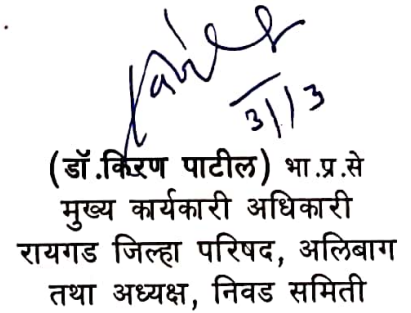 31/3
(डॉ.किरण पाटील) भा.प्र.से
मुख्य कार्यकारी अधिकारी
रायगड जिल्हा परिषद, अलिबाग
तथा अध्यक्ष, निवड समिती